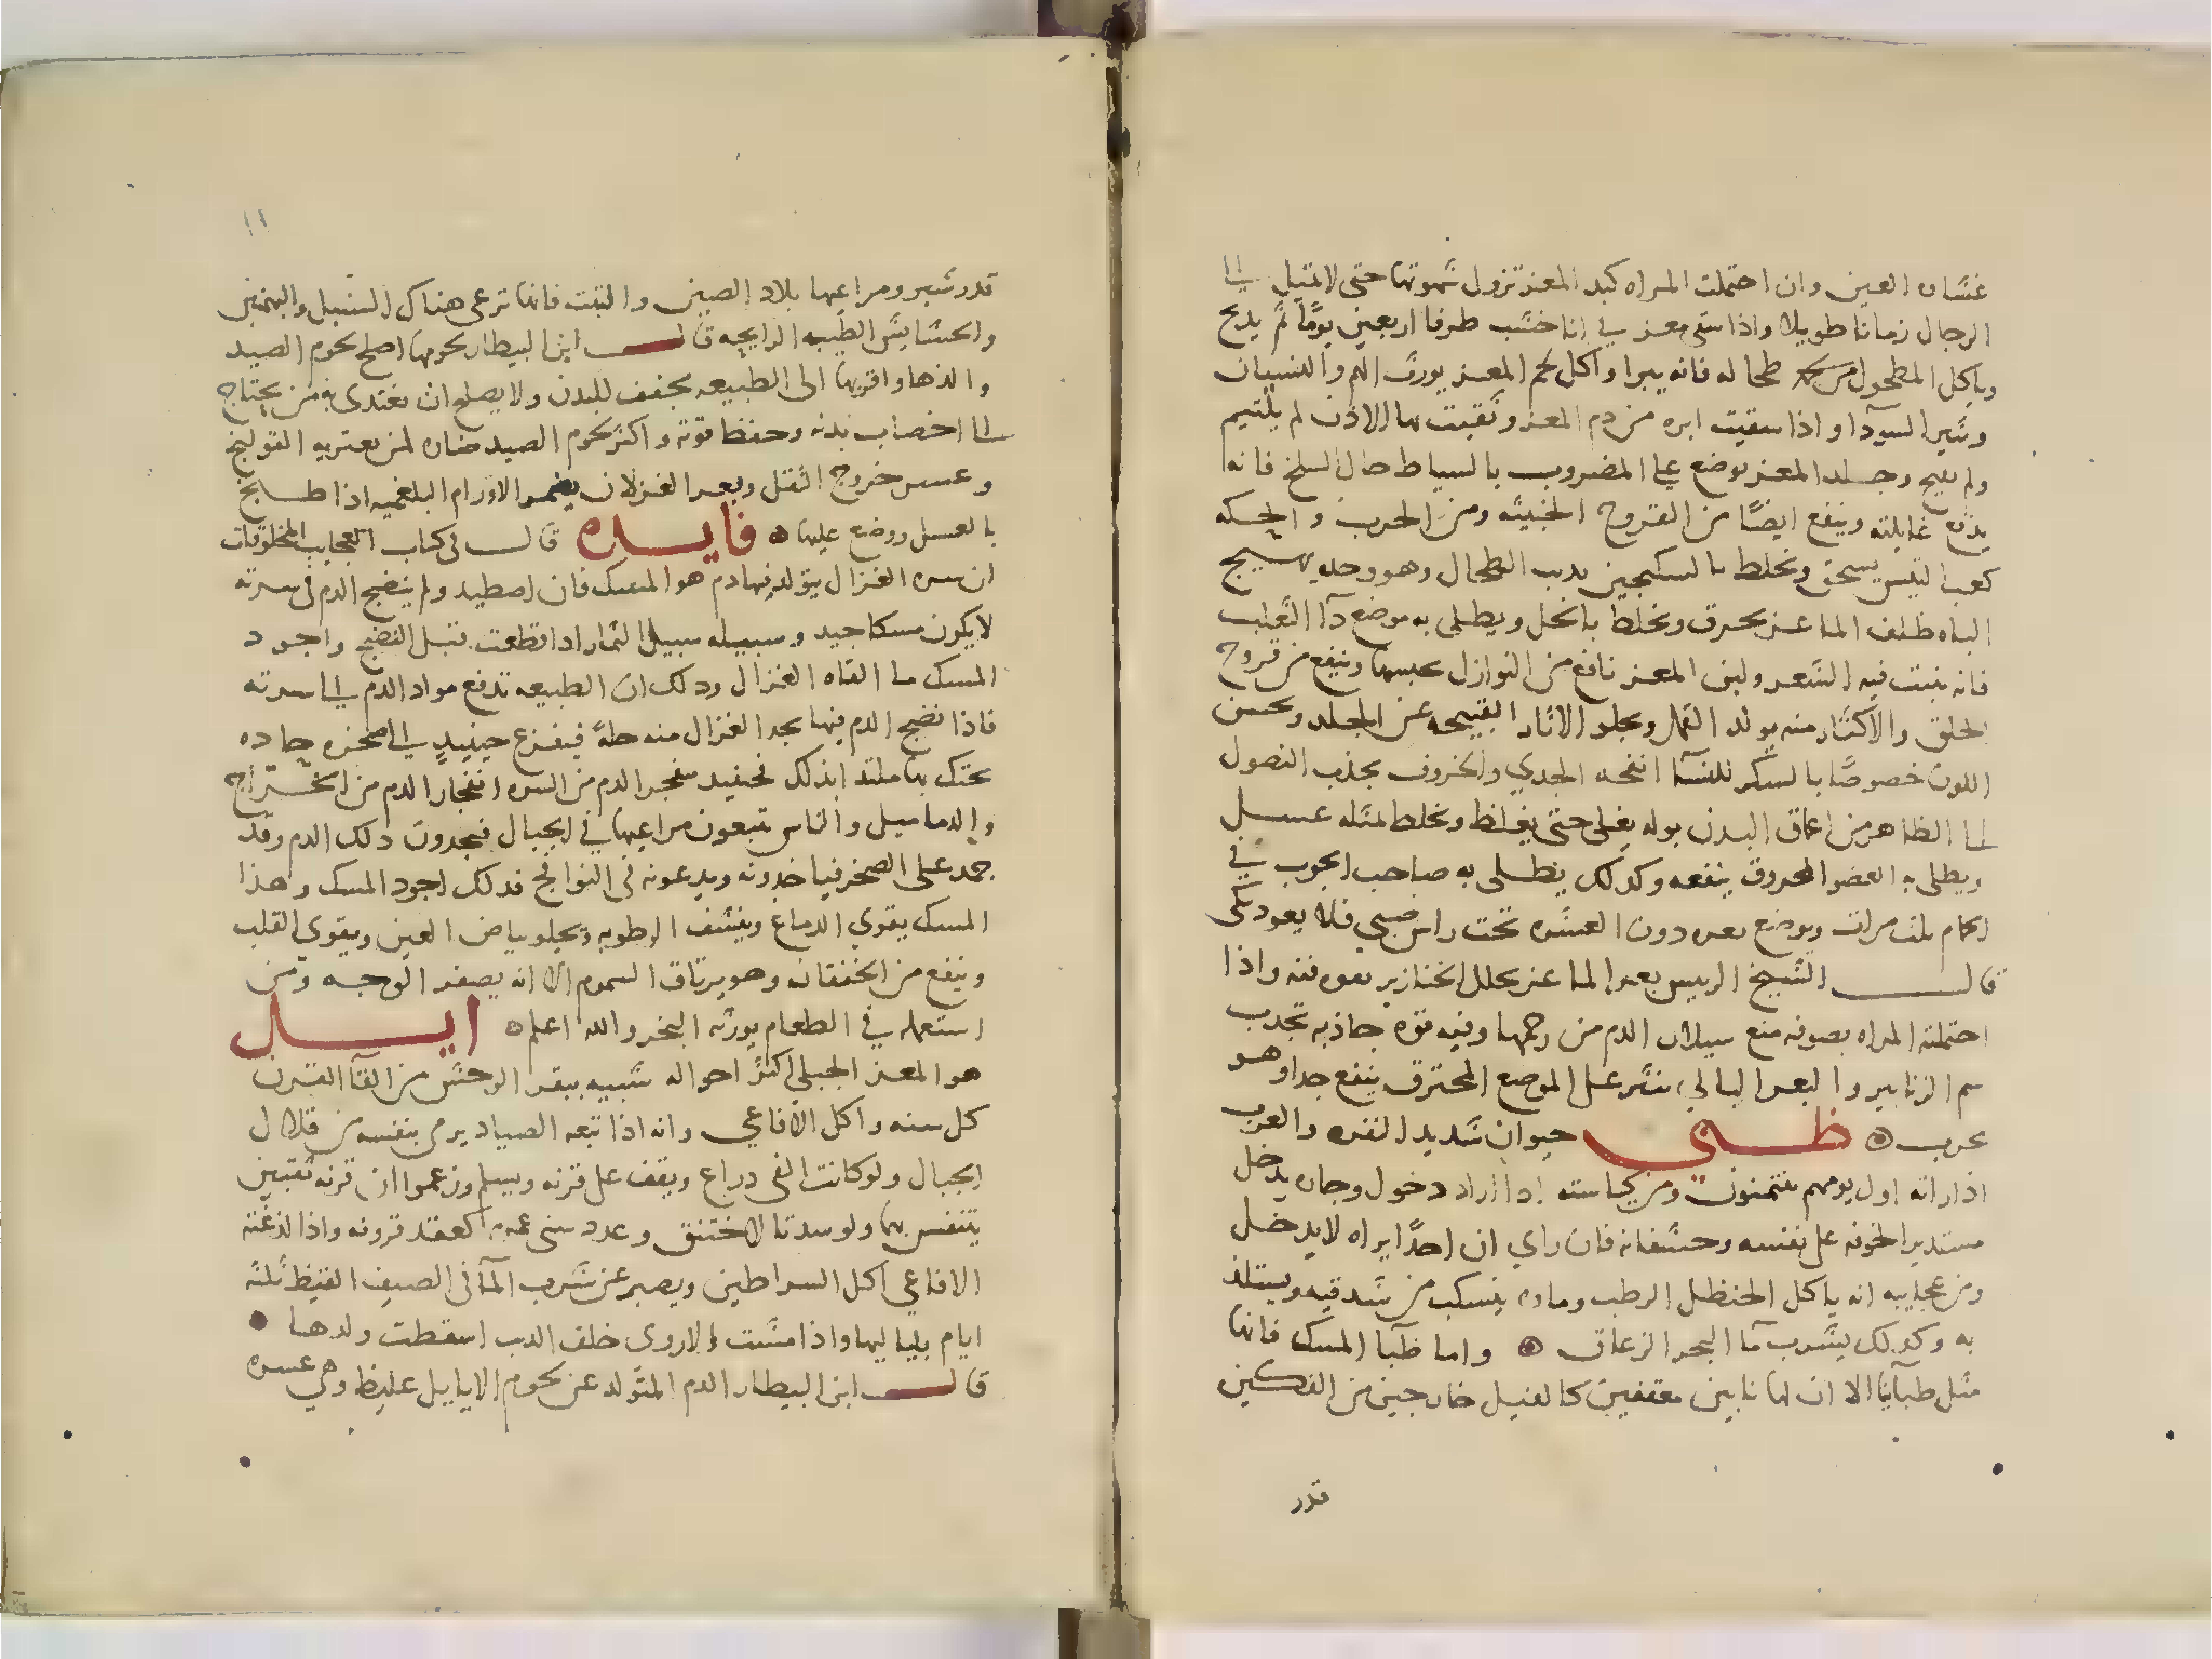 غشاوه العين وان احتملت المراه كبد المعز تزول شهوتها حتى لا تميل الى
الرجال زمانا طويلا واذا سقى معز في انا خشب طرفا اربعين يوما ثم يذبح
وياكل المطحول من طحاله فانه يبرا واكل لحم المعز يورث الهم والنسيان
وتثير السودا واذا سقيت ابره من دم المعز وثقبت بها الاذن لم يلتيم
ولم يقيح وجلد المعز يوضع على المضروب بالسياط حال السلخ فانه
يدفع غايلته وينفع ايضًا من القروح الخبيثه ومن الجرب والحكه
كعب التيس يسحق ويخلط بالسكنجبين يذيب الطحال وهو وحده يهيج
الباه ظلف الماعز يحرق ويخلط بالخل ويطلى به موضع دآ الثعلب
فانه ينبت فيه الشعر ولبن المعز نافع من النوازل يحبسها وينفع من قروح
الحلق والاكثار منه يولد القمل ويجلو الاثار القبيحه عن الجلد ويحسن
اللون خصوصًا بالسكر للنسآ انفحه الجدي والخروف يجذب النصول
الى الظاهر من اعماق البدن بوله يغلى حتى يغلظ ويخلط بمثله عسل
ويطلى به العضو المحروق ينفعه وكذلك يطلى به صاحب الجرب في
الحمام ثلث مرات ويوضع بعره دون العشره تحت راس صبي فلا يعود يبكى
قال الشيخ الرييس بعر الماعز يحلل الخنازير بقوه فيه واذا
احتملته المراه بصوفه منع سيلان الدم من رحمها وفيه قوه جاذبه تجذب
سم الزنابير والبعر البالي ينثر على الموضع المحترق ينفع جدا وهو
مجرب ظبي حيوان شديد النفره والعرب
اذا راته اول يومهم يتيمنون ومن كياسته اذا اراد دخول وجاره يدخل
مستدبرا لخوفه على نفسه وخشفانه فان راي ان احدًا يراه لا يدخل
ومن عجايبه انه ياكل الحنظل الرطب وماوه ينسكب من شدقيه ويستلذ
به وكذلك يشرب مآ البحر الزعاق واما ظبآ المسك فانها
مثل ظبآينا الا ان لها نابين معقفين كالفيل خارجين من الفكين
قدر
١١
قدر شبر ومراعيها بلاد الصين والتبت فانها ترعى هناك السنبل والبهمنين
والحشايش الطيبه الرايحه قال ابن البيطار لحومها اصلح لحوم الصيد
والذها واقربها الى الطبيعه مجفف للبدن ولا يصلح ان يغتدى به من يحتاج
الى اخصاب بدنه وحفظ قوته واكثر لحوم الصيد ضاره لمن يعتريه القولنج
وعسر خروج الثفل وبعر الغزلان يضمر الاورام البلغميه اذا طبخ
بالعسل ووضع عليها فايده قال في كتاب العجايب المخلوقات
ان سره الغزال يتولد فيها دم هو المسك فان اصطيد ولم ينضج الدم فى سرته
لا يكون مسكا جيد وسبيله سبيل الثمار اذا قطعت قبل النضج واجود
المسك ما القاه الغزال وذلك ان الطبيعه تدفع مواد الدم الى سرته
فاذا نضج الدم فيها يجد الغزال منه حكةً فيفزع حينيذٍ الى صخره حاده
يحتك بها ملتذا بذلك فحينيذ ينفجر الدم من السره انفجار الدم من الخراج
والدماميل والناس يتبعون مراعيها في الجبال فيجدون ذلك الدم وقد
جمد على الصخر فياخذونه ويدعونه فى النوافج فذلك اجود المسك وهذا
المسك يقوي الدماغ وينشف الرطوبه ويجلو بياض العين ويقوي القلب
وينفع من الخفقان وهو ترياق السموم الا انه يصفر الوجه ومن
استعمله في الطعام يورثه البخر والله اعلم ايل
هو المعز الجبلي اكثر احواله شبيه ببقر الوحش من القآ القرن
كل سنه واكل الافاعي وانه اذا تبعه الصياد يرمى بنفسه من قلال
الجبال ولو كانت الفى دراع ويقف على قرنه ويسلم وزعموا ان قرنه ثقبتين
يتنفس بها ولو سدتا لاختنق وعدد سنى عمره كعقد قرونه واذا لدغته
الافاعي اكل السراطين ويصبر عن شرب المآ فى الصيف القيظ ثلثه
ايام بلياليها واذا مشت الاروى خلف الدب اسقطت ولدها
قال ابن البيطار الدم المتولد عن لحوم الايايل غليظ وهي عسره